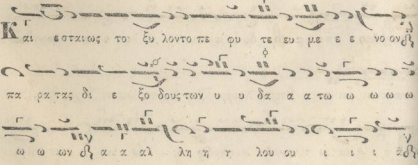 Και εσται ως το ξυ λον το πε φυ τε ευ με ε ε νο ον
πα ρα τας δι ε ξο δους των υ υ δα α α τω ω ω ω ω
ω ω ων α α αλ λη η η λου ου ι ι ι α